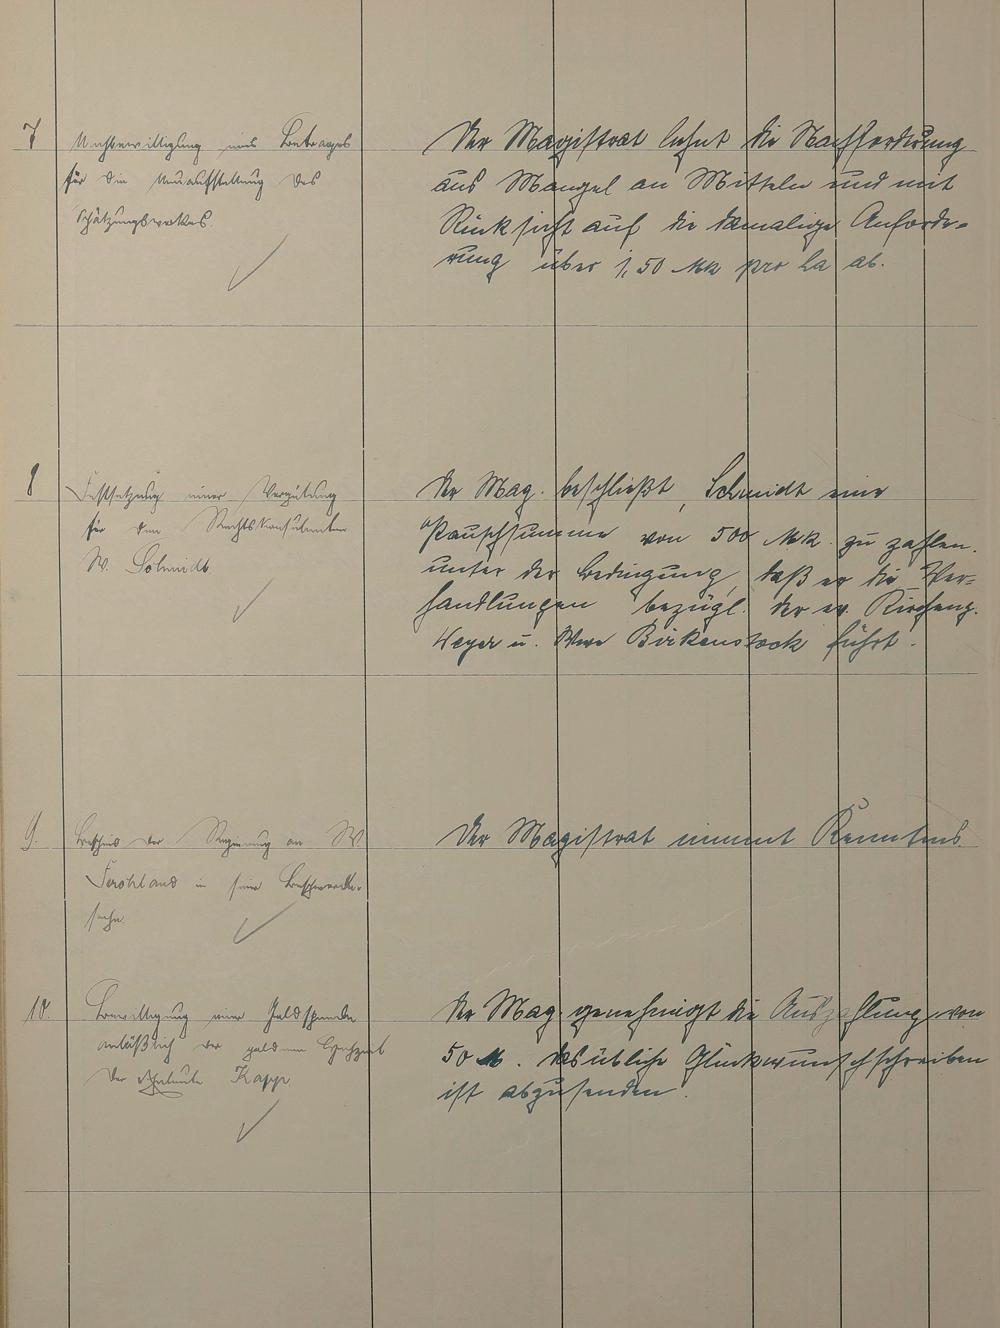 7
Nachbewilligung eines Betrages
für die Neuaufstellung des
Schätzungswerkes
Der Magistrat lehnt die Nachforderung
aus Mangel an Mitteln und mit
Rücksicht auf die damalige Anforde-
rung über 1,50 Mk pro ha ab.
8
Festsetzung einer Vergütung
für den Rechtskonsulenten
W. Schmidt
Der Mag. beschließt, Schmidt eine
Pauschsumme von 500 Mk. zu zahlen.
unter der Bedingung, daß er die Ver-
handlungen bezügl. der ev. Kircheng.
Heyer u. Wwe Birkenstock führt.
9.
Bescheid der Regierung an W.
Ferohland in seiner Beschwerde-
sache
Der Magistrat nimmt Kenntnis.
10.
Bewilligung einer Geldspende
anläßlich der goldenen Hochzeit
der Eheleute Kapp
Der Mag. genehmigt die Auszahlung von
50 M. das übliche Glückwunschschreiben
ist abzusenden.